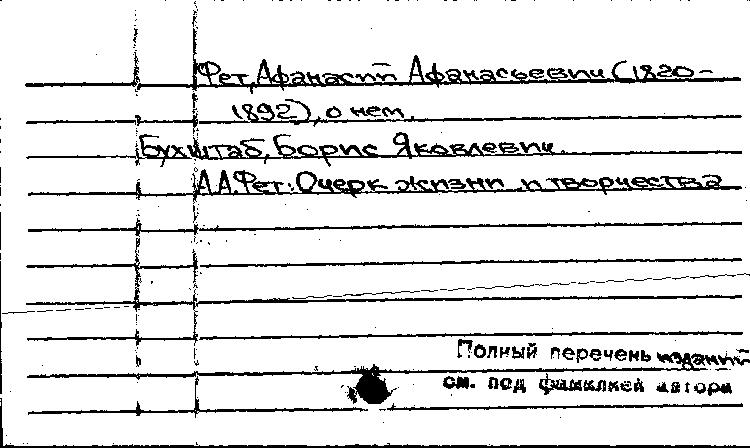 Фет, Афанасий Афанасьевич (1820-
1892), о нем.
Бухштаб, Борис Яковлевич.
А.А.Фет: Очерк жизни и творчества
Полный перечень изданий
см. под фамилией автора